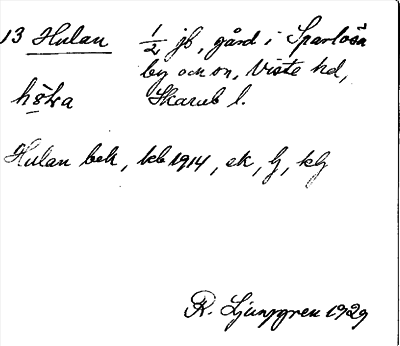 13 Hulan 1/2 jb, gård i Sparlösa
by och sn, Viste hd,
Skarab l.
Hulan bek, kb 1914, ek, lj, klj
R. Ljunggren 1929